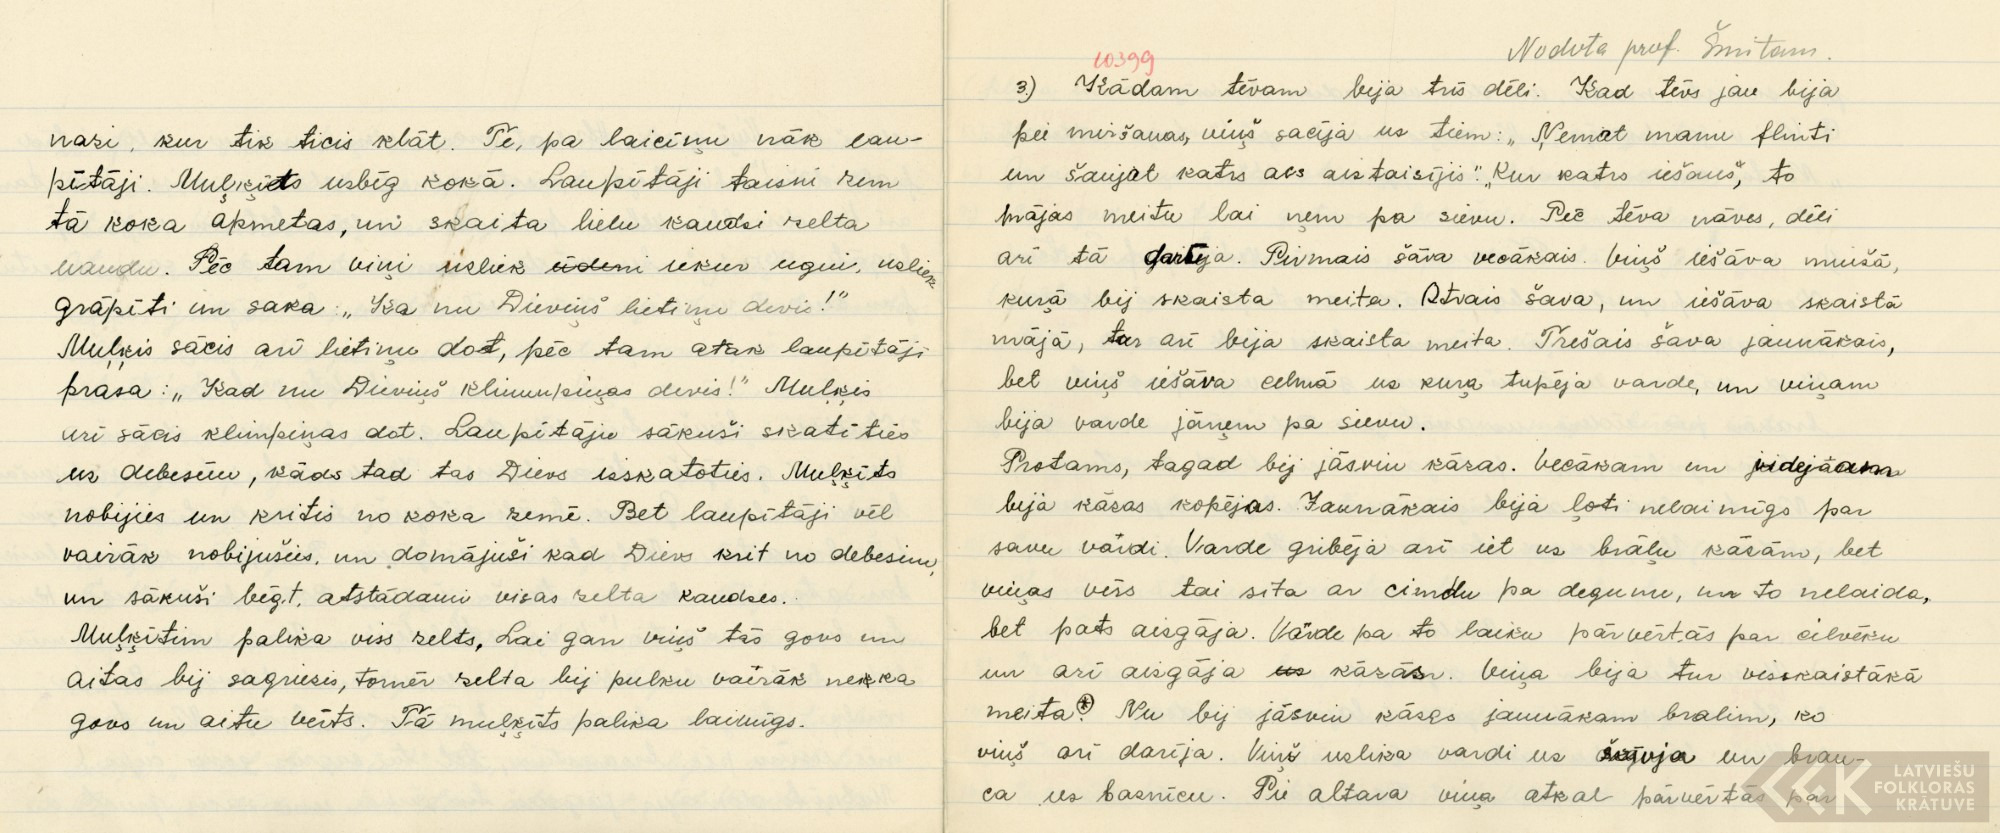 nazi, kur tik ticis klāt. Te, pa laiciņu nāk lau-
pītāji. Muļķīts uzbēg kokā. Laupītāji taisni zem
tā koka apmetas, un skaita lielu kaudzi zelta
naudu. Pēc tam viņi uzliek ūdeni iekur uguni, uzliek
grāpīti un saka: „Ka nu Dieviņš lietiņu devis!"
Muļķis sācis arī lietiņu dot, pēc tam atak laupītāji
prasa: „Kad nu Dieviņš klimpiņas devis!" Muļķis
arī sācis klimpiņas dot. Laupītāji sākuši skatīties
uz debesīm, kāds tad tas Dievs izskatoties. Muļķīts
nobijies un kritis no koka zemē. Bet laupītāji vēl
vairāk nobijušies, un domājuši kad Dievs krit no debesīm,
un sākuši bēgt, atstādami visas zelta kaudzes.
Muļķītim palika viss zelts, Lai gan viņš tās govs un
aitas bij sagriezis, tomēr zelta bij pulku vairāk nekka
govs un aitu vērts. Tā muļķīts palika laimīgs.
Nodota prof. Šmitam.
10399
3.) Kādam tēvam bija trīs dēli. Kad tēvs jau bija
pie miršanas, viņš sacīja uz tiem: „Ņemat manu flinti
un šaujat katrs acs aiztaisījis". „Kur katrs iešaus, to
mājas meitu lai ņem pa sievu. Pēc tēva nāves, dēli
arī tā darīja. Pirmais šāva vecākais. Viņš iešāva muižā,
kurā bij skaista meita. Otrais šava, un iešāva skaistā
mājā, tur arī bija skaista meita. Trešais šava jaunākais,
bet viņš iešāva celmā uz kura tupēja varde, un viņam
bija varde jāņem pa sievu.
Protams, tagad bij jāsvin kāzas. Vecākam un vidējāam
bija kāzas kopējas. Jaunākais bija ļoti nelaimīgs par
savu vārdi. Varde gribēja arī iet uz brāļu kāzām, bet
viņas vīrs tai sita ar cimdu pa degunu, un to nelaida,
bet pats aizgāja. Varde pa to laiku pārvērtās par cilvēku
un arī aizgāja uz kāzām. Viņa bija tur visskaistākā
meita.* Nu bij jāsvin kāzas jaunākam brālim, ko
viņš arī darīja. Viņš uzlika vardi uz šķīvja un brau-
ca uz baznīcu. Pie altara viņa atkal pārvērtās par
LATVIEŠU
FOLKLORAS
KRĀTUVE